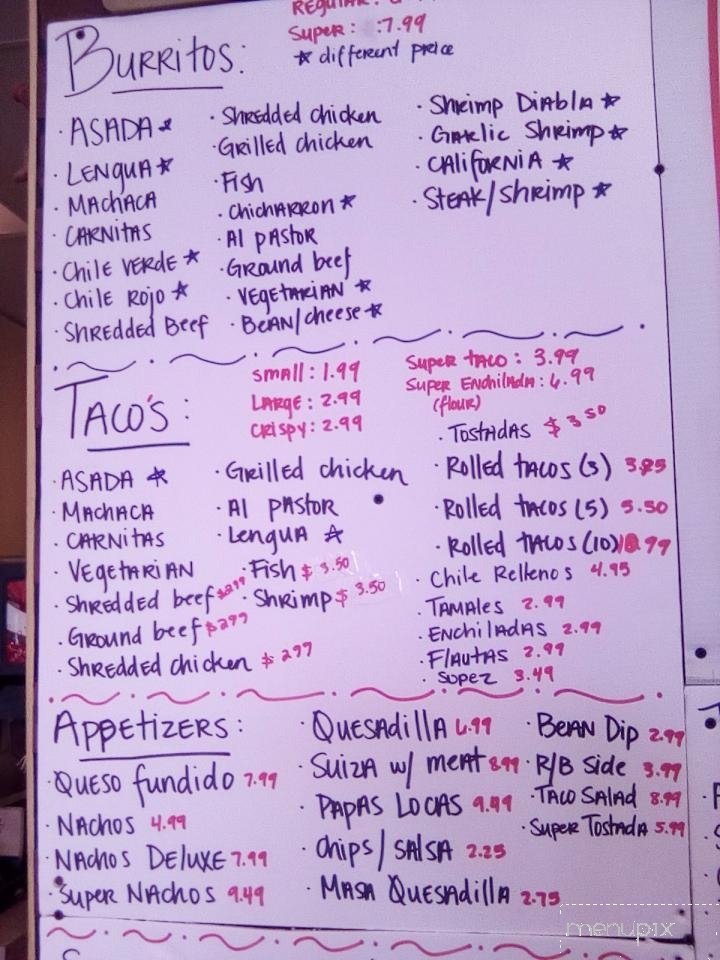 REGULAR:
Super: 7.99
★ different price
BURRITOS:
· ASADA ★
· LENGUA ★
· MACHACA
· CARNITAS
· Chile VERDE ★
· Chile Rojo ★
· Shredded Beef
· Shredded chicken
· Grilled chicken
· Fish
· ChichARRon ★
· Al pAstoR
· Ground beef
· VegetARIAN ★
· BeAN/cheese ★
· Shrimp DiAblA ★
· GARlic Shrimp ★
· CAlifoRNIA ★
· STEAK/Shrimp ★
TACO'S:
small: 1.99
LARge: 2.99
CRispy: 2.99
Super tAco: 3.99
Super EnchilAdA: 6.99
(flour)
· ASADA ★
· MAchACA
· CARNitAS
· VegetARIAN
· Shredded beef $2.99
· Ground beef $2.99
· Shredded chicken $2.99
· Grilled chicken
· Al pAStoR
· LenguA ★
· Fish $3.50
· Shrimp $3.50
· TostAdAS $3.50
· Rolled tAcos (3)
· Rolled tAcos (5) 5.50
· Rolled tAcos (10)
· Chile Rellenos 4.95
· TAmAles 2.99
· EnchilAdAS 2.99
· FlAutAS 2.99
· Sopez 3.49
APPETIZERS:
· Queso fundido 7.99
· NAchos 4.99
· NAchos Deluxe 7.99
· Super NAchos 9.49
· QUESAdillA 6.99
· SuizA w/ meAt 8.99
· PAPAS LOCAS 9.99
· chips/SAlSA 2.25
· MASA QuesAdillA 2.75
· BEAN Dip 2.99
· R/B Side 3.99
· TACO SAlAd 8.99
· Super TostAdA 5.99
menupix